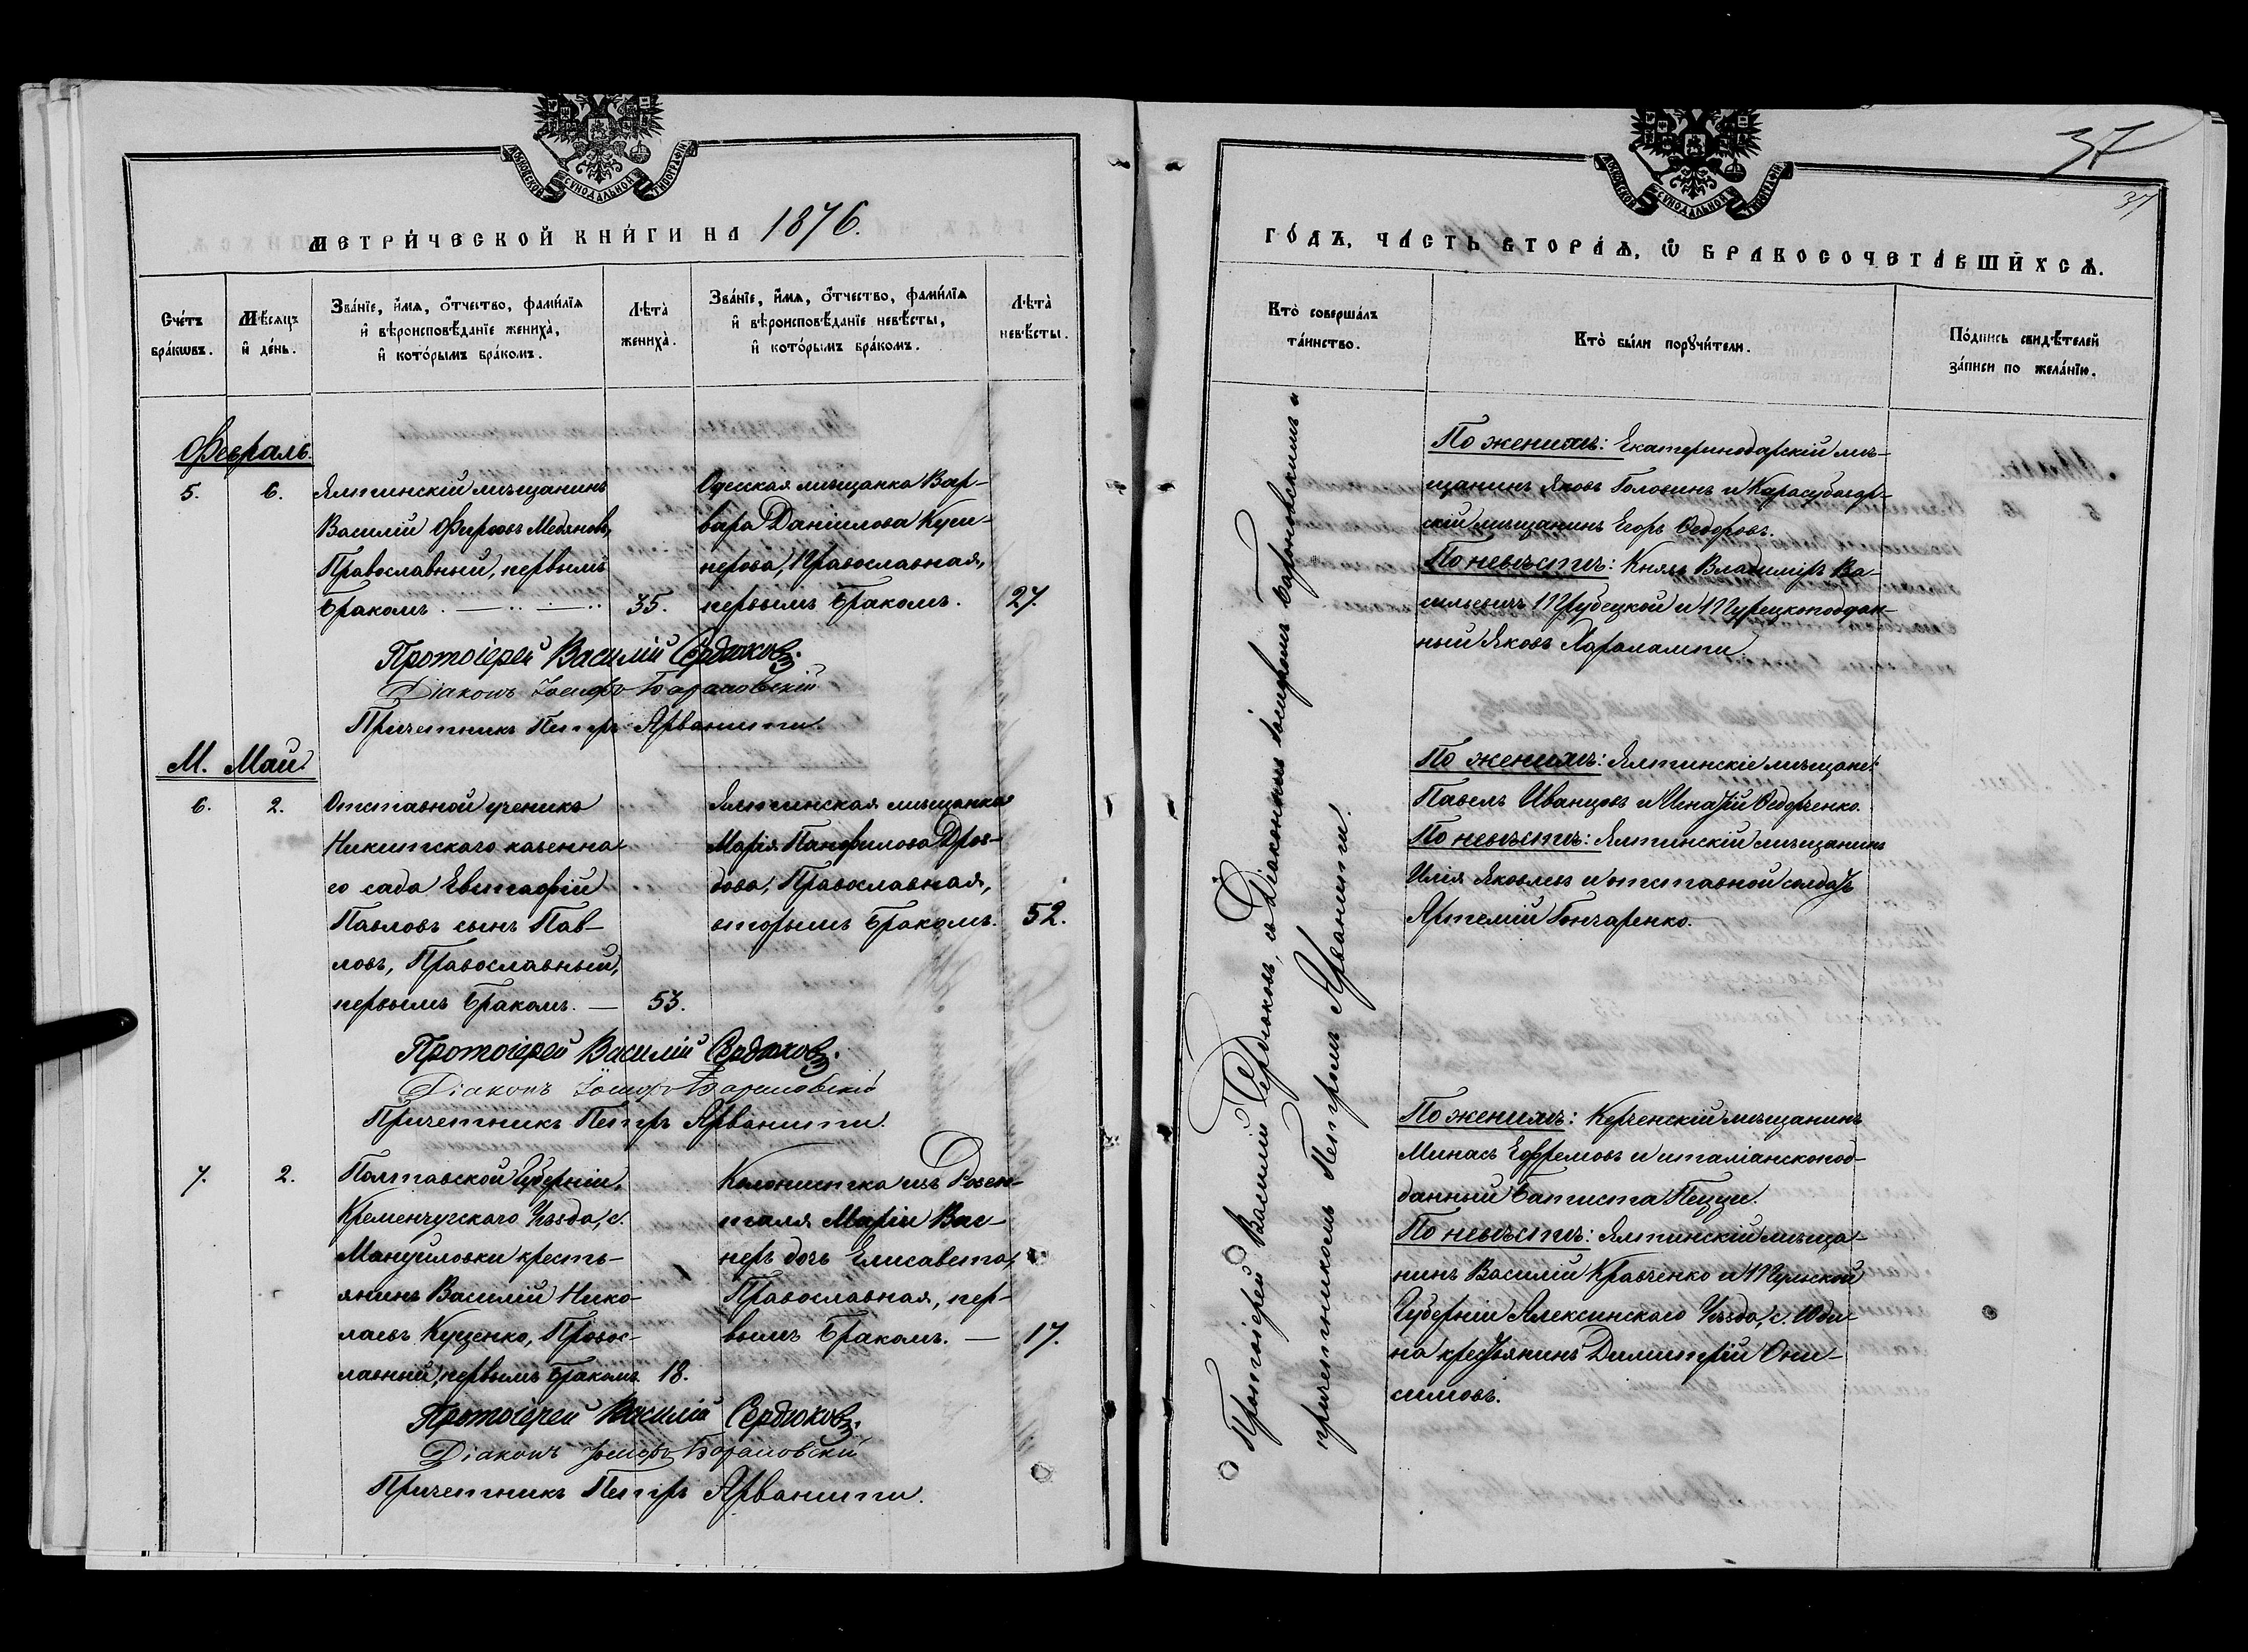 МОСКОВСКОЙ СѴНОДАЛЬНОЙ ТИПОГРАФІИ
МЕТРИ́ЧЕСКОЙ КНИ́ГИ НА 1876.
Сче́тъ бра́кωвъ.
Мѣ́сяцъ и҆ де́нь.
Зва́нїе, и҆́мѧ, ѻ҆́тчество, фами́лїѧ
и҆ вѣроисповѣ́данїе жениха̀,
и҆ кото́рымъ бра́комъ.
Лѣта̀ жениха̀.
Зва́нїе, и҆́мѧ, ѻ҆́тчество, фами́лїѧ
и҆ вѣроисповѣ́данїе невѣ́сты,
и҆ кото́рымъ бра́комъ.
Лѣта̀ невѣ́сты.
Февраль.
5. 6.
Ялтинскій мѣщанинъ
Василій Фирсовъ Медяновъ,
Православный, первымъ
бракомъ. 35.
Одесская мѣщанка Вар-
вара Даніилова Куш-
нерова, Православная,
первымъ бракомъ. 27.
Протоіерей Василій Сердюковъ.
Діаконъ Іосифъ Барановскій
Причетникъ Петръ Арванити.
М. Май.
6. 2.
Отставной ученикъ
Никитскаго казенна-
го сада Евтафій
Павловъ сынъ Пав-
ловъ, Православный,
первымъ бракомъ. — 53.
Ялтинская мѣщанка
Марія Панфилова Дроз-
дова, Православная,
вторымъ бракомъ. 52.
Протоіерей Василій Сердюковъ.
Діаконъ Іосифъ Барановскій
Причетникъ Петръ Арванити.
7. 2.
Полтавской Губерніи,
Кременчугскаго Уѣзда, с.
Мануиловки кресть-
янинъ Василій Нико-
лаевъ Куценко, Правос-
лавный, первымъ бракомъ. 18.
Колонистка изъ Розен-
таля Маріи Ваг-
неръ дочь Елисавета,
Православная, пер-
вымъ бракомъ. — 17.
Протоіерей Василій Сердюковъ.
Діаконъ Іосифъ Барановскій
Причетникъ Петръ Арванити.
37
37
МОСКОВСКОЙ СѴНОДАЛЬНОЙ ТИПОГРАФІИ
ГО́ДЪ, ЧА́СТЬ ВТОРА́Ѧ, Ѽ БРАКОСОЧЕТА́ВШИХСѦ.
Кто̀ соверша́лъ
та́инство.
Кто̀ бы́ли порꙋчи́тели.
По́дпись свидѣ́телей
за́писи по жела́нїю.
Протоіерей Василій Сердюковъ, съ Діакономъ Іосифомъ Барановскимъ и
причетникомъ Петромъ Арванити.
По женихѣ: Екатеринодарскій мѣ-
щанинъ Яковъ Головинъ и Карасубазар-
скій мѣщанинъ Егоръ Ѳедоровъ.
По невѣстѣ: Князь Владиміръ Ва-
сильевичъ Трубецкой и Турецкоподдан-
ный Яковъ Харалампи.
По женихѣ: Ялтинскіе мѣщане:
Павелъ Иванцовъ и Игнатій Ѳедорченко.
По невѣстѣ: Ялтинскій мѣщанинъ
Илія Яковлевъ и отставной солдатъ
Артемій Гончаренко.
По женихѣ: Керченскій мѣщанинъ
Минасъ Ефремовъ и италіанскопод-
данный Батиста Пецци.
По невѣстѣ: Ялтинскій мѣща-
нинъ Василій Кравченко и Тульской
Губерніи Алексинскаго Уѣзда, с. Юди-
на крестьянинъ Димитрій Они-
симовъ.